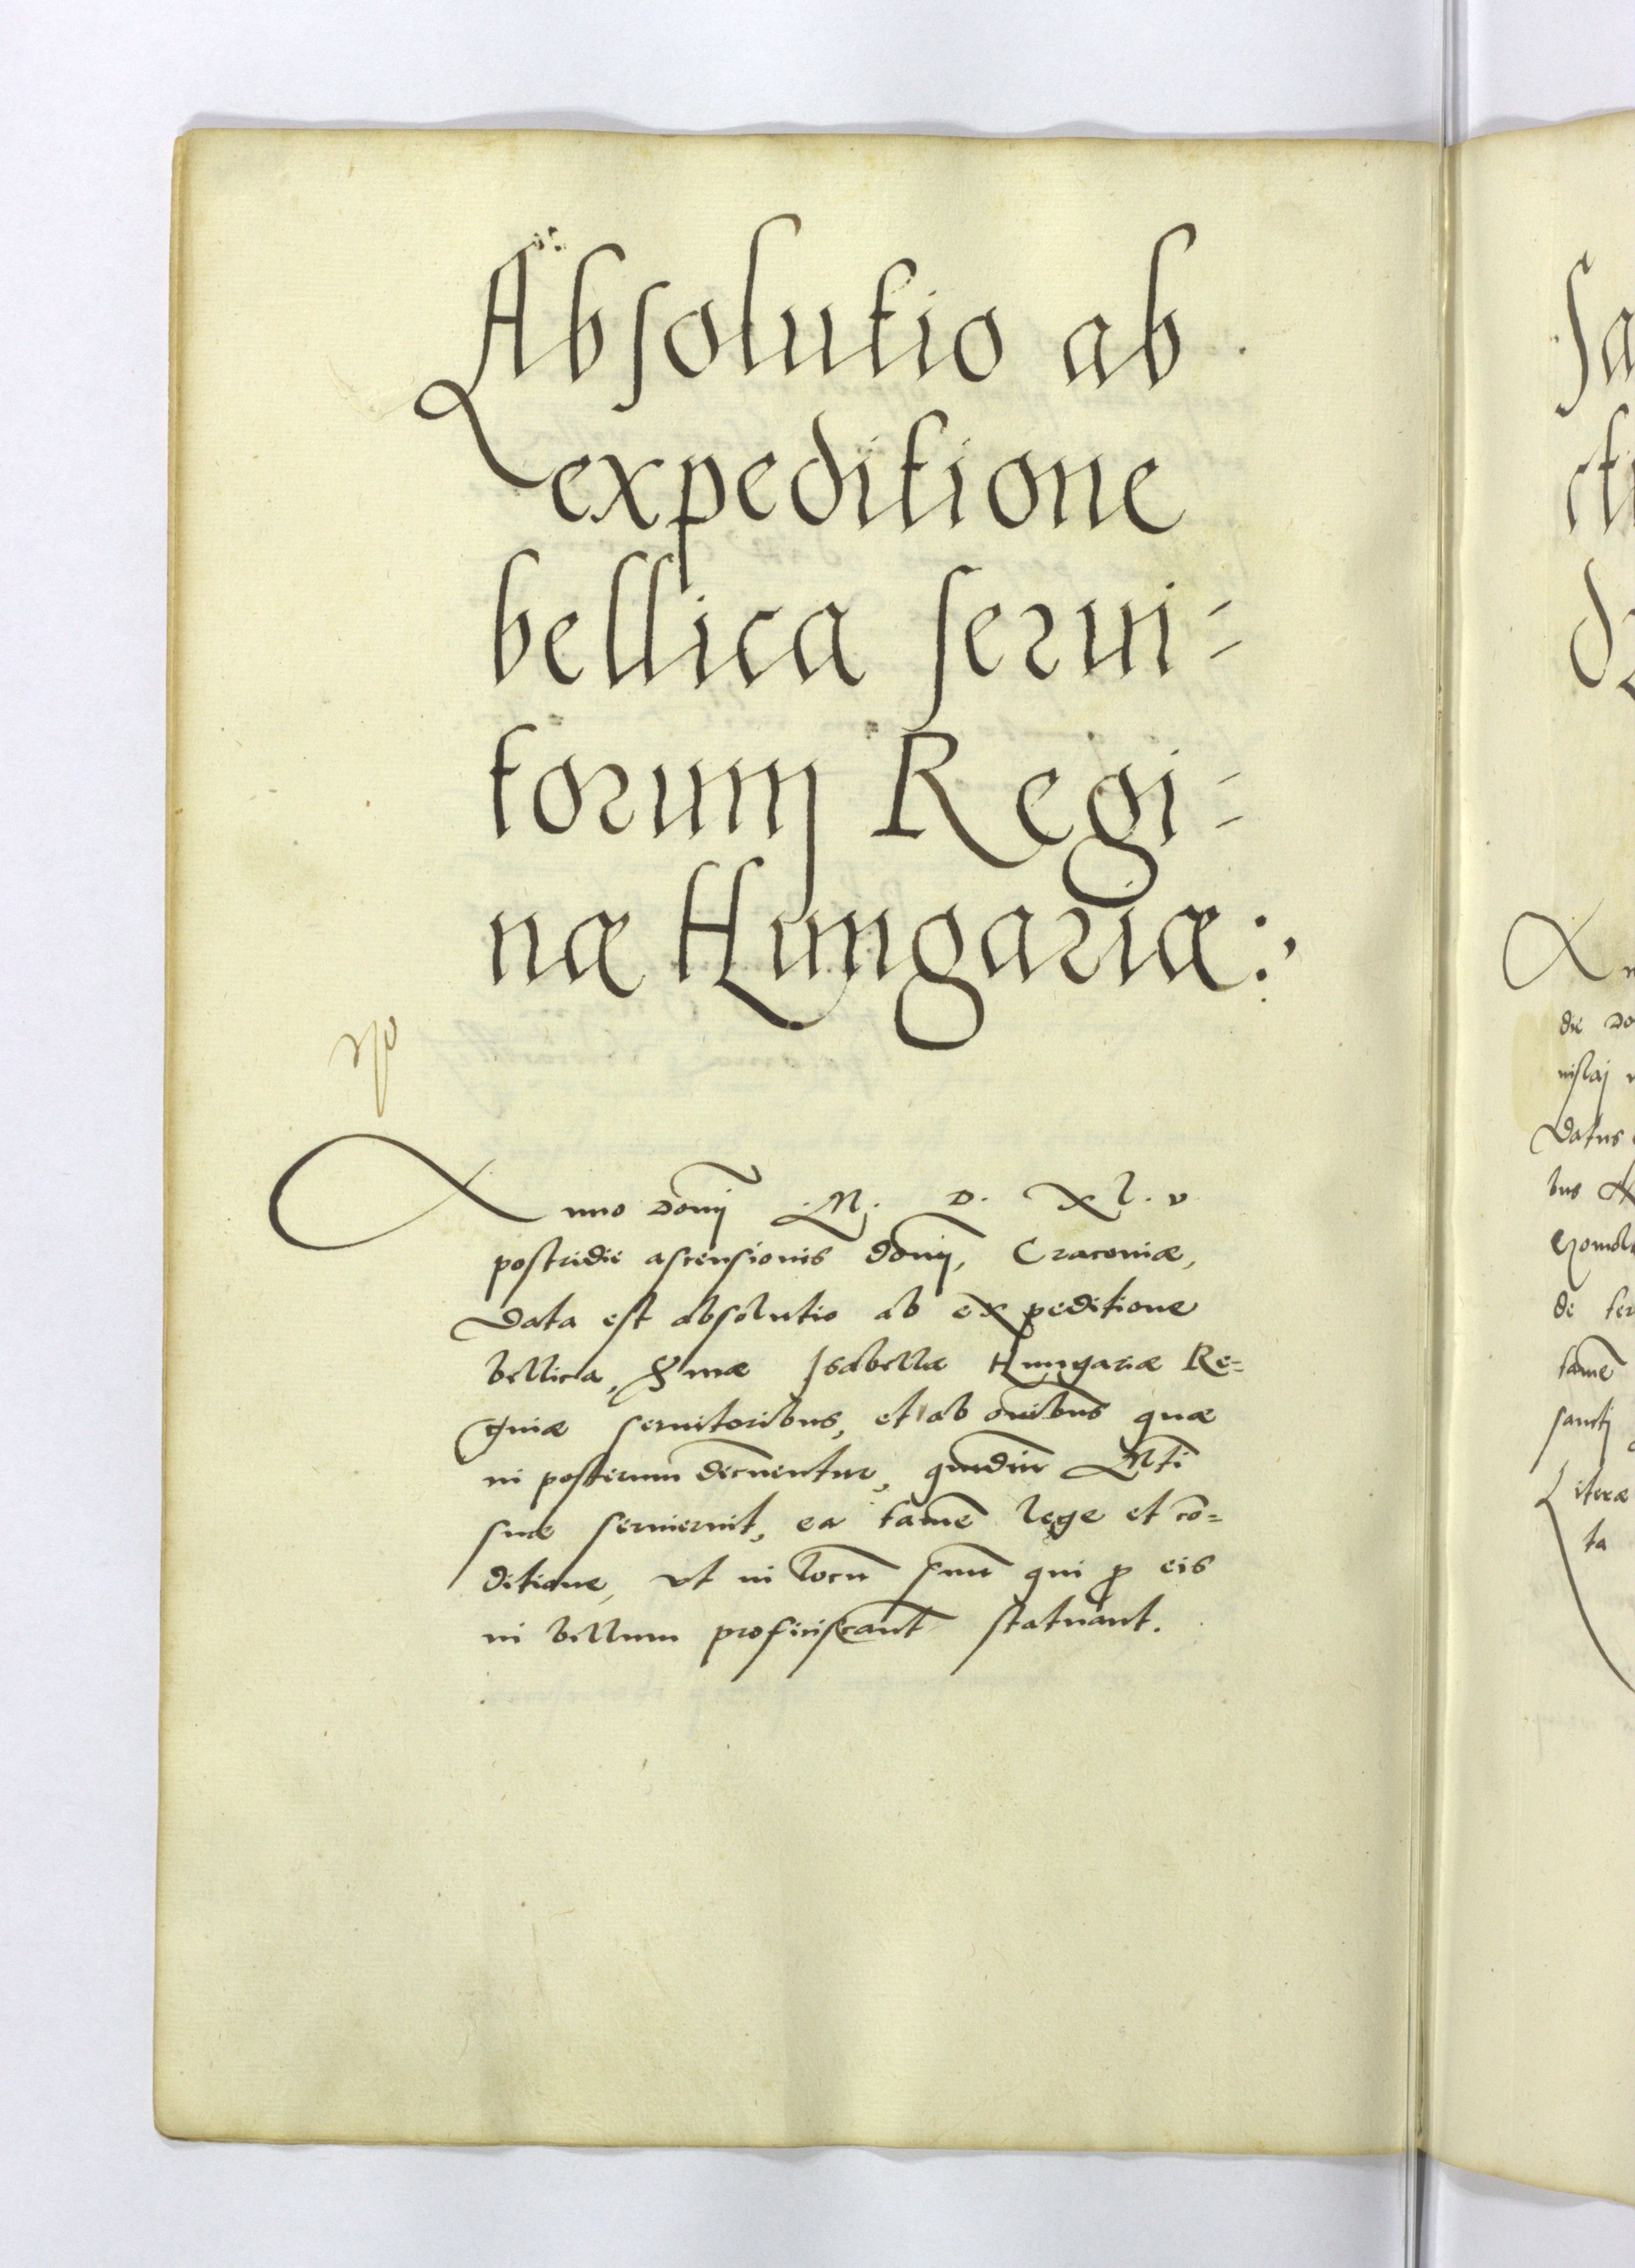 Absolutio ab
expeditione
bellica serui=
torum Regi=
næ Hungariæ:
Anno Domī M. D. XL. v
postridie ascensionis domī, Cracouiæ,
Data est absolutio ab expeditione
bellica, S. mæ Isabellæ Hungariæ Re=
ginæ seruitoribus, et ab om̄ibus quæ
in posterum decnentur, quādiu M̄ti
suæ seruierint, ea tamē lege et cō=
ditione, vt in locū suū qui p eis
in bellum proficiscant̄ statuant.
die
nislaj
Datus
bus
de
tamē
sancti
Literæ
ta